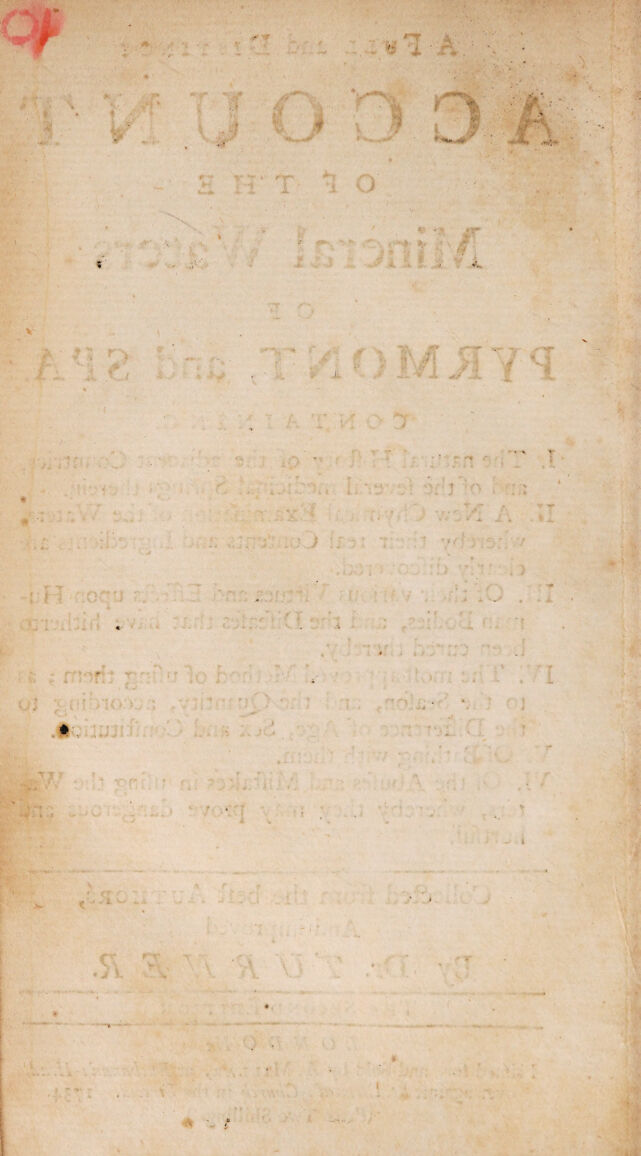 A FULL and DISTINCT
ACCOUNT
OF THE
Mineral Waters
OF
PYRMONT, and SPA
CONTAINING
I. The natural Hiſtory of the adjacent Countries,
and of the ſeveral medicinal Springs therein.
II. A New Chymical Examination of the Waters,
whereby their real Contents and Ingredients are
clearly diſcovered.
III. Of their various Virtues and Effects upon Hu-
man Bodies, and the Diſeaſes that have hitherto
been cured thereby.
IV. The moſt approved Method of uſing them; as
to the Seaſon, and the Quantity, according to
the Difference of Age, Sex and Conſtitution.
V. Of Bathing with them.
VI. Of the Abuſes and Miſtakes in uſing the Wa-
ters, whereby they may prove dangerous and
hurtful.
Collected from the beſt AUTHORS,
And improved
By Dr. TURNER.
The SECOND EDITION
LONDON:
and Sold by
Church in the 1734
Two Shilling